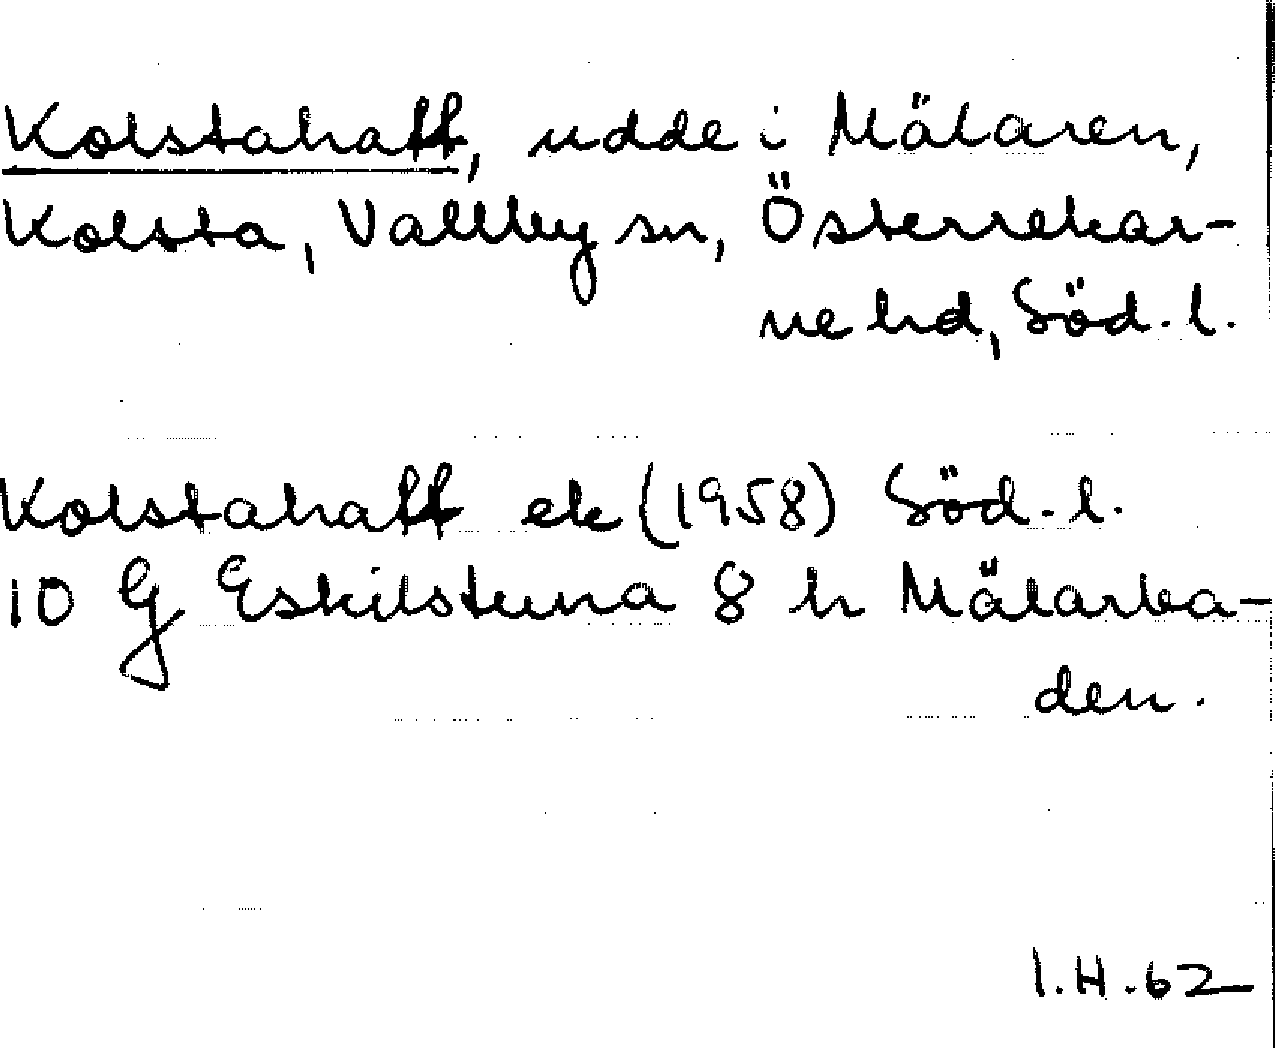 Kolstahatt, udde i Mälaren,
Kolsta, Vallby sn, Österrekar-
ne hd, Söd. l.
Kolstahatt ek (1958) Söd. l.
10 G Eskilstuna 8 h Mälarba-
den.
I.H. 62